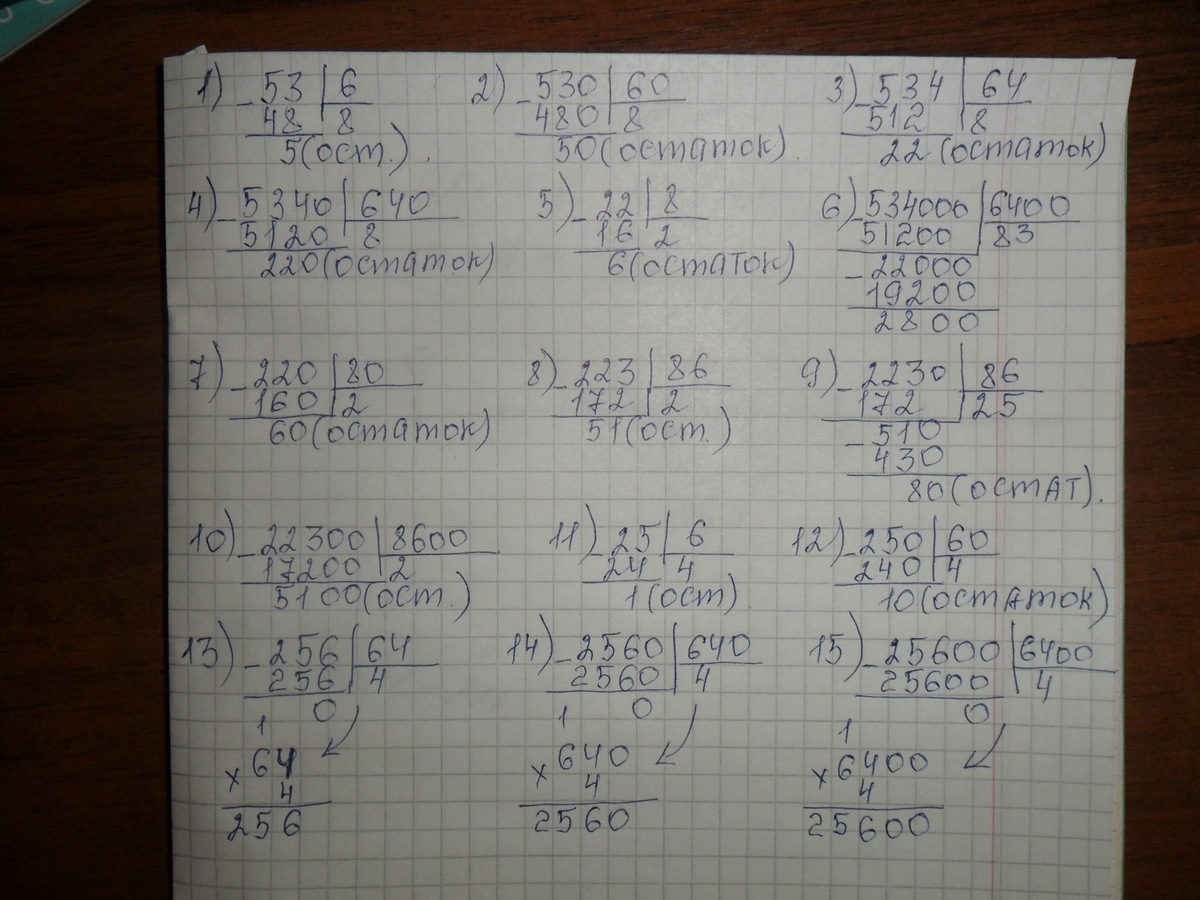 1) -53 | 6
48 | 8
5(ост.).
2) -530 | 60
480 | 8
50(остаток).
3) -534 | 64
512 | 8
22(остаток)
4) -5340 | 640
5120 | 8
220(остаток)
5) -22 | 8
16 | 2
6(остаток)
6) -534000 | 6400
51200 | 83
-22000
19200
2800
7) -220 | 80
160 | 2
60(остаток)
8) -223 | 86
172 | 2
51(ост.)
9) -2230 | 86
172 | 25
-510
430
80(остат).
10) -22300 | 8600
17200 | 2
5100(ост.)
11) -25 | 6
24 | 4
1(ост)
12) -250 | 60
240 | 4
10(остаток)
13) -256 | 64
256 | 4
0
1
×64
4
256
14) -2560 | 640
2560 | 4
0
1
×640
4
2560
15) -25600 | 6400
25600 | 4
0
1
×6400
4
25600